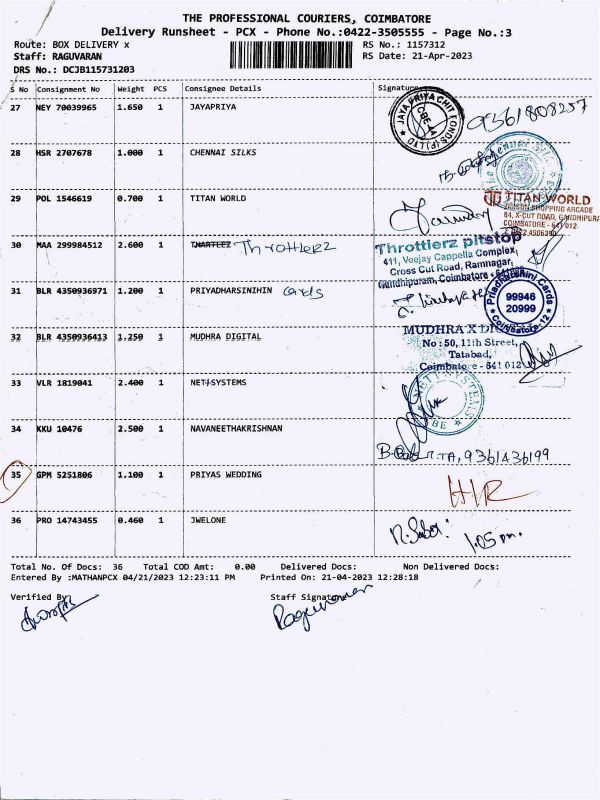 THE PROFESSIONAL COURIERS, COIMBATORE
Delivery Runsheet - PCX - Phone No.:0422-3505555 - Page No.:3
Route: BOX DELIVERY x RS No.: 1157312
Staff: RAGUVARAN RS Date: 21-Apr-2023
DRS No.: DCJB115731203
S No Consignment No Weight PCS Consignee Details Signature
27 NEY 70039965 1.650 1 JAYAPRIYA
JAYAPRIYA CHIT FUNDS (P) LTD CBE-
9361808257
28 HSR 2707678 1.000 1 CHENNAI SILKS
29 POL 1546619 0.700 1 TITAN WORLD
TITAN WORLD
SHOPPING ARCADE
84, X-CUT ROAD, GANDHIPURA
COIMBATORE - 641 012
30 MAA 299984512 2.600 1 Throttlerz
Throttlerz pitstop
411, Veejay Cappella Complex,
Cross Cut Road, Ramnagar,
Gandhipuram, Coimbatore -
31 BLR 4350936971 1.200 1 PRIYADHARSINIHIN Cards
Priadharshini Cards
99946
20999
Coimbatore-12
32 BLR 4350936413 1.250 1 MUDHRA DIGITAL
MUDHRA X
No: 50, 11th Street,
Tatabad,
Coimbatore - 641 012
33 VLR 1819041 2.400 1 NET SYSTEMS
34 KKU 10476 2.500 1 NAVANEETHAKRISHNAN
9361436199
35 GPM 5251806 1.100 1 PRIYAS WEDDING
36 PRO 14743455 0.460 1 JWELONE
1.05 pm.
Total No. Of Docs: 36 Total COD Amt: 0.00 Delivered Docs: Non Delivered Docs:
Entered By :MATHANPCX 04/21/2023 12:23:11 PM Printed On: 21-04-2023 12:28:18
Verified By Staff Signature
Raguvaran